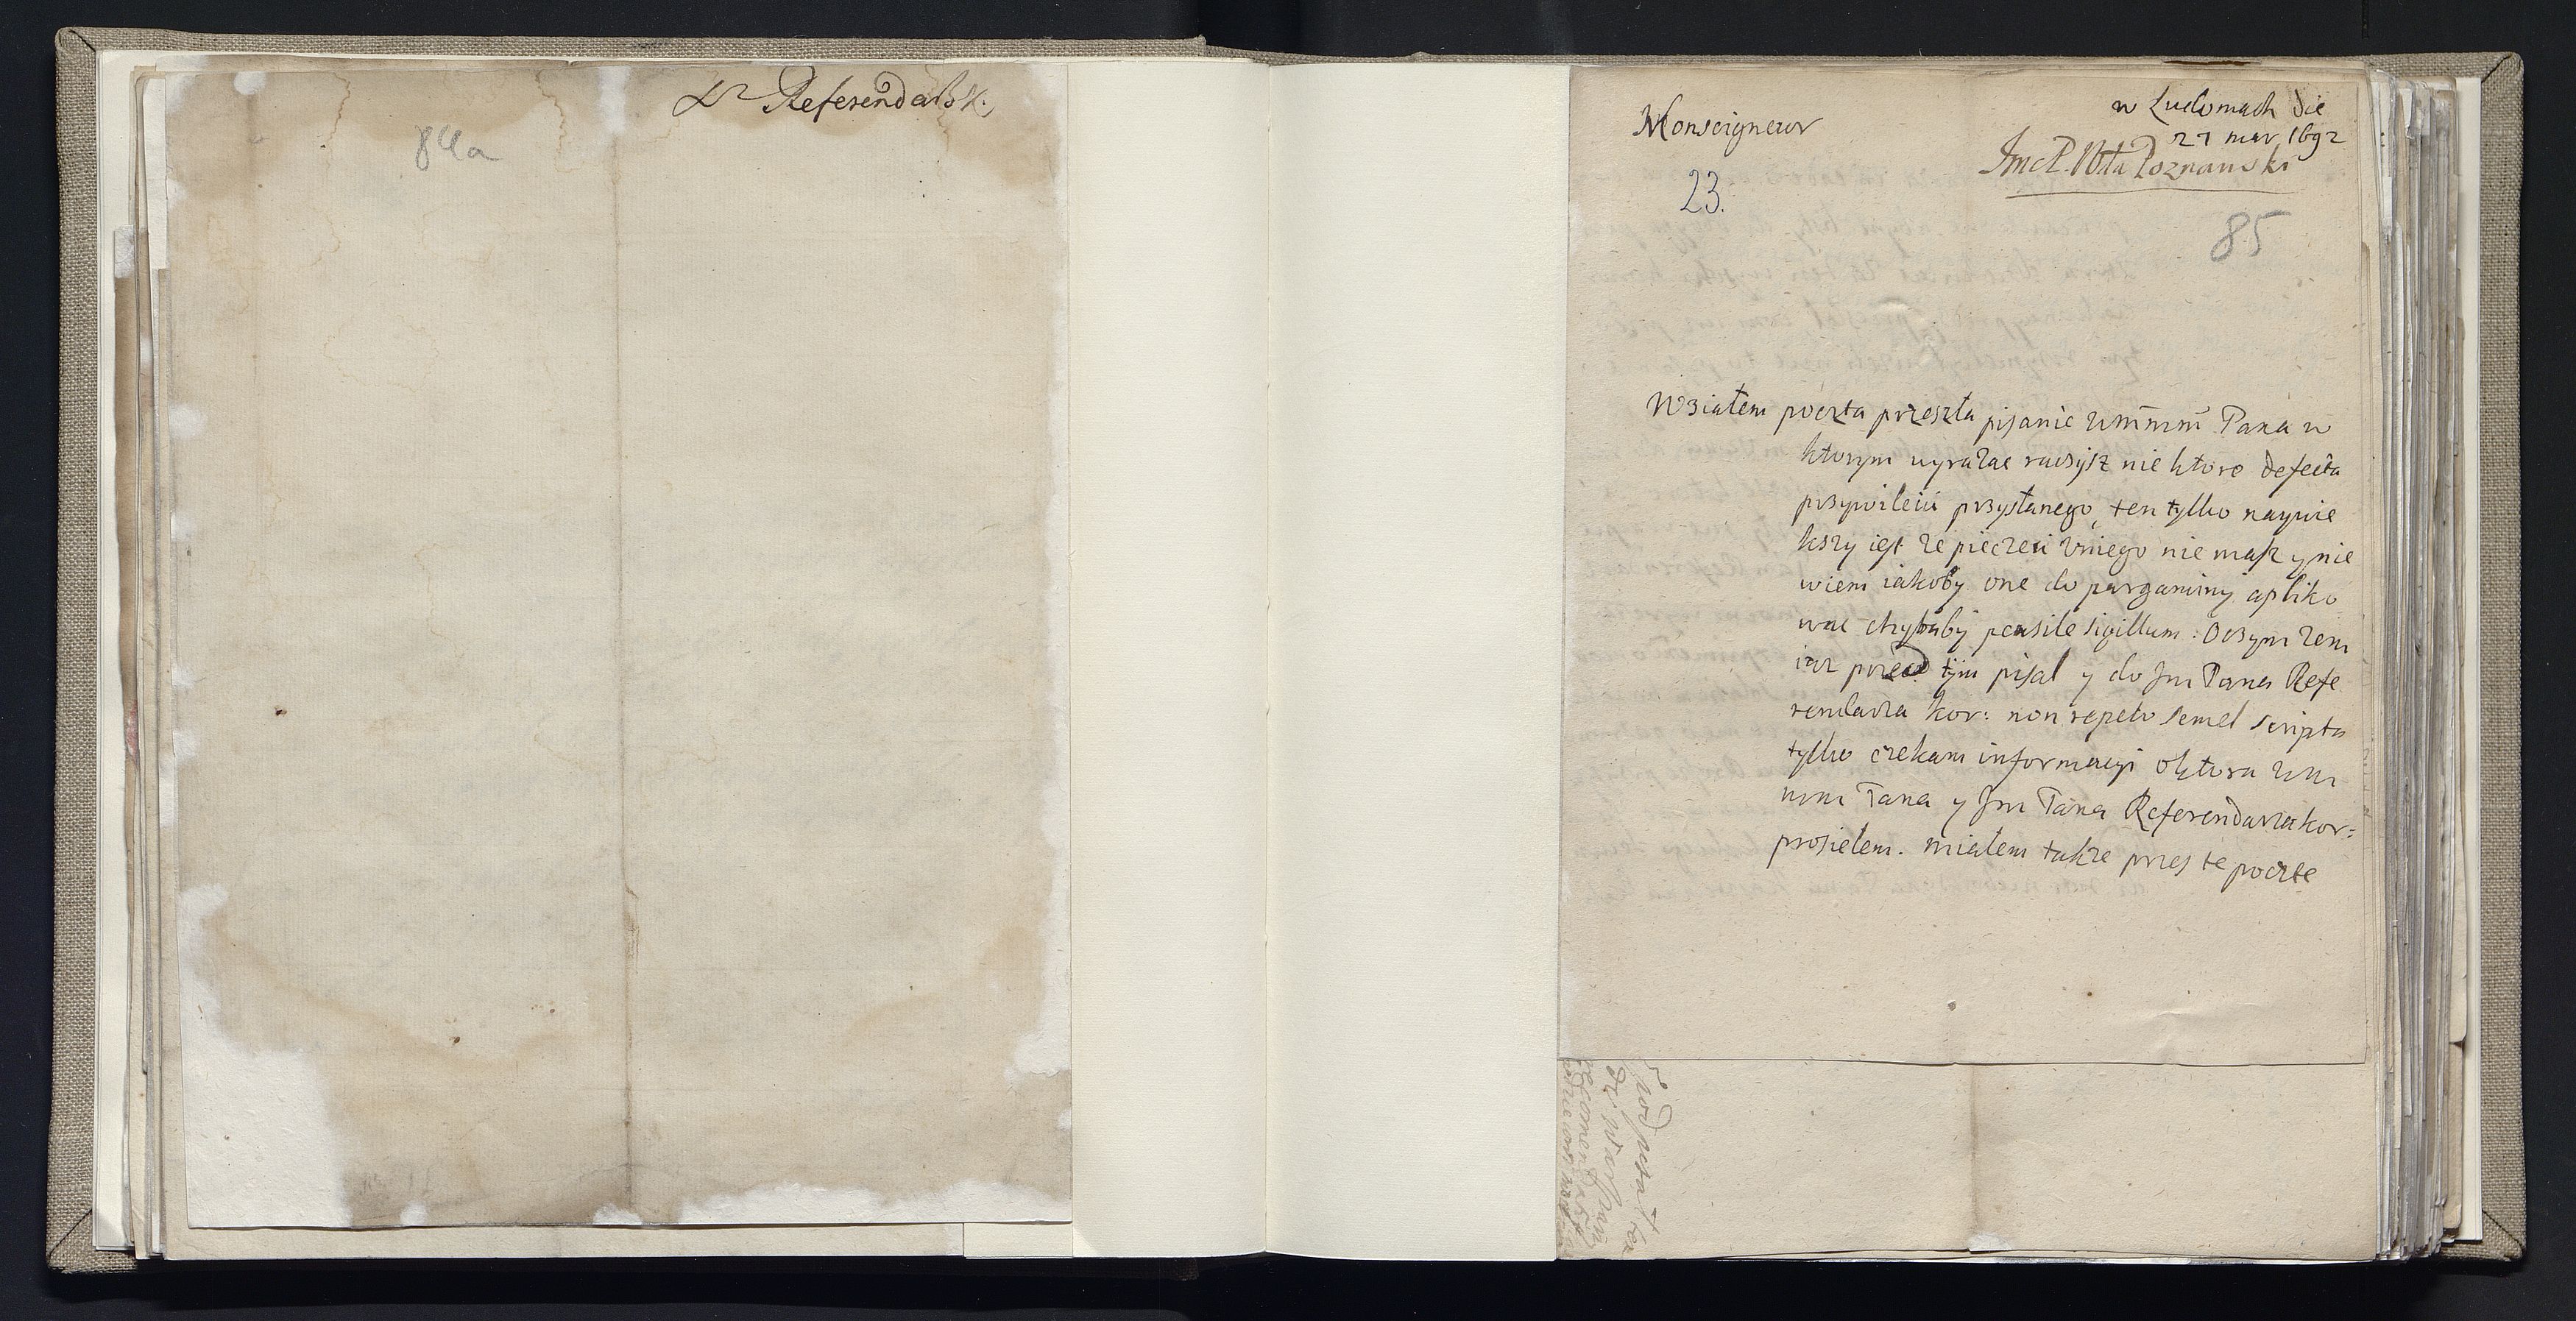 Referendarsk.
84a
Monseigneur
w Ludomach die
27 mar 1692
ImcP. Wta Poznanski
23.
85
Wziałem poczta przeszła pisanie Wmmm Pana w
ktorym wyrazac raczysz nie ktore defecta
przywileiu przysłanego, ten tylko naywie
kszy iest ze pieczeci v niego nie masz y nie
wiem iakoby one do pargaminy apliko
wac chybaby pensile sigillum: Oczym zem
iuz przed tym pisal y do Jm Pana Refe
rendarza kor: non repeto semel scripta
tylko czekam informacyi oktora Wm
mm Pana y Jm Pana Referendarza kor:
prosiełem. miałem takze przes te poczte
podpisał